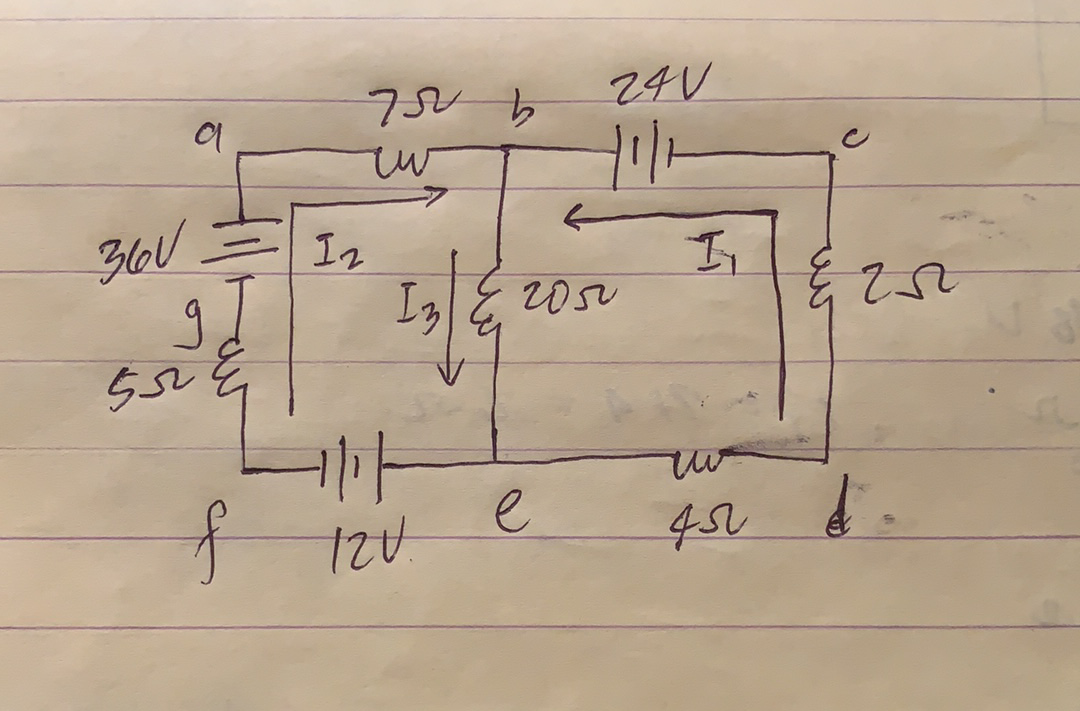 7Ω b 24V
a c
36V I₂ I₁
I₃ 20Ω 2Ω
g
5Ω
f 12V e 4Ω d